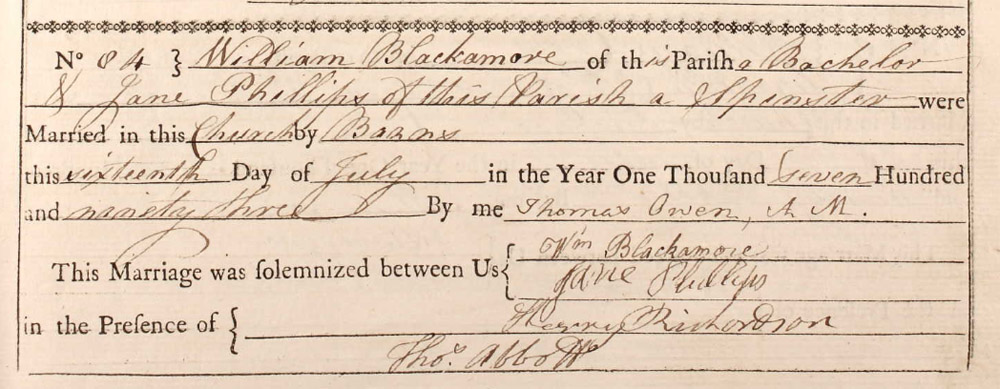 No 84 } William Blackamore of this Pariſh a Bachelor
& Jane Phillips of this Parish a Spinster were
Married in this Church by Banns
this sixteenth Day of July in the Year One Thouſand Seven Hundred
and ninety three By me Thomas Owen, A M.
This Marriage was ſolemnized between Us { Wm Blackamore
Jane Phillips
in the Preſence of { Henry Richardson
Thos Abbott